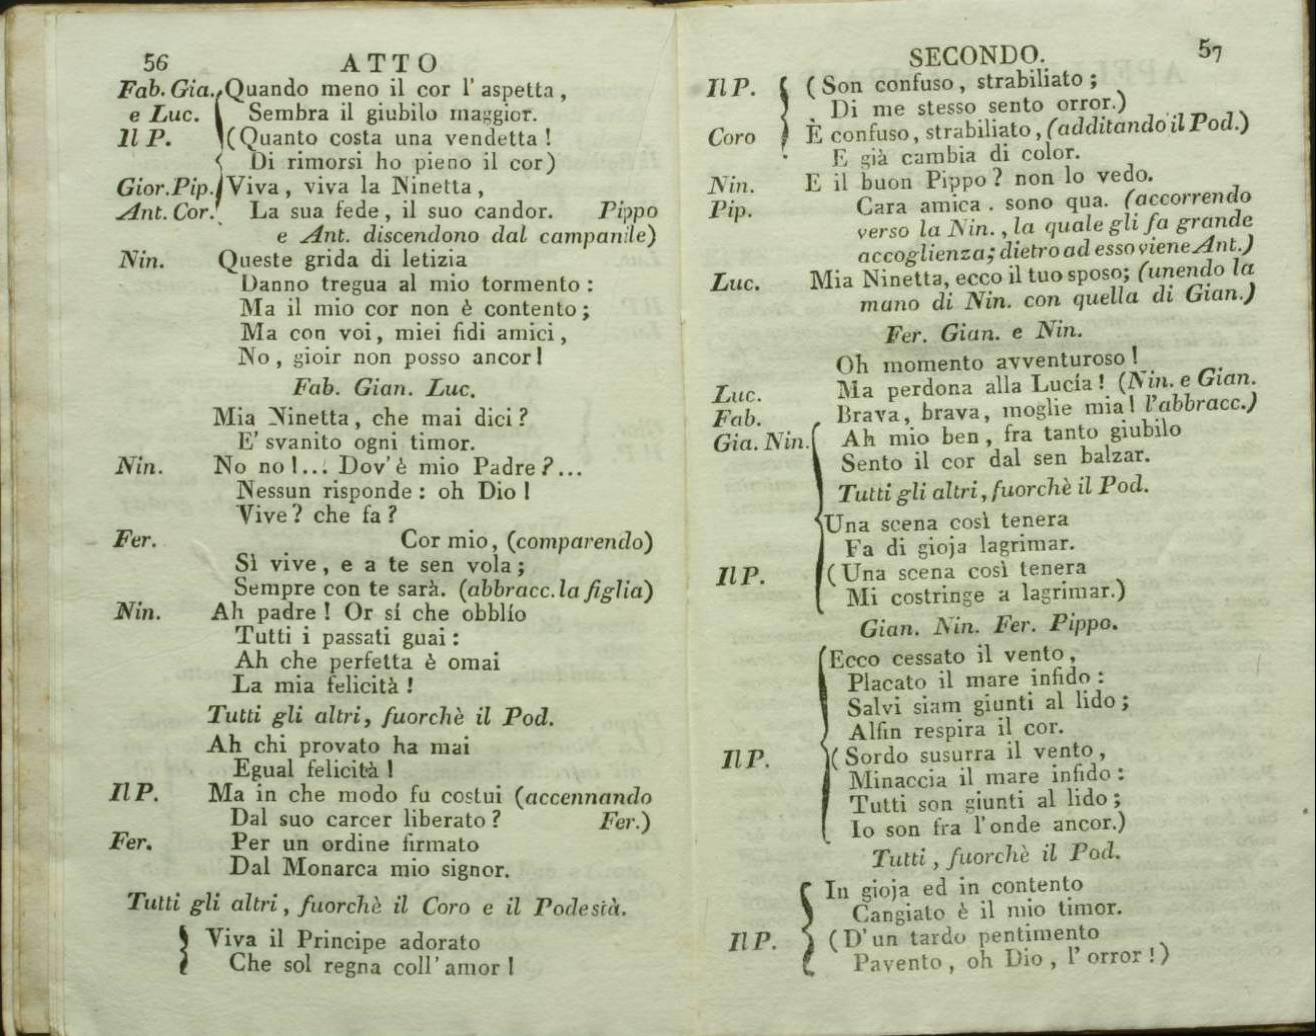 56
ATTO
Fab. Gia. Quando meno il cor l'aspetta,
e Luc. Sembra il giubilo maggior.
Il P. (Quanto costa una vendetta!
Di rimorsi ho pieno il cor)
Gior. Pip. Viva, viva la Ninetta,
Ant. Cor. La sua fede, il suo candor. Pippo
e Ant. discendono dal campanile)
Nin. Queste grida di letizia
Danno tregua al mio tormento:
Ma il mio cor non è contento;
Ma con voi, miei fidi amici,
No, gioir non posso ancor!
Fab. Gian. Luc.
Mia Ninetta, che mai dici?
E' svanito ogni timor.
Nin. No no!... Dov'è mio Padre?...
Nessun risponde: oh Dio!
Vive? che fa?
Fer. Cor mio, (comparendo)
Sì vive, e a te sen vola;
Sempre con te sarà. (abbracc. la figlia)
Nin. Ah padre! Or sí che obblío
Tutti i passati guai:
Ah che perfetta è omai
La mia felicità!
Tutti gli altri, fuorchè il Pod.
Ah chi provato ha mai
Egual felicità!
Il P. Ma in che modo fu costui (accennando
Dal suo carcer liberato? Fer.)
Fer. Per un ordine firmato
Dal Monarca mio signor.
Tutti gli altri, fuorchè il Coro e il Podestà.
Viva il Principe adorato
Che sol regna coll'amor!
SECONDO.
57
Il P. (Son confuso, strabiliato;
Di me stesso sento orror.)
Coro È confuso, strabiliato, (additando il Pod.)
E già cambia di color.
Nin. E il buon Pippo? non lo vedo.
Pip. Cara amica. sono qua. (accorrendo
verso la Nin., la quale gli fa grande
accoglienza; dietro ad esso viene Ant.)
Luc. Mia Ninetta, ecco il tuo sposo; (unendo la
mano di Nin. con quella di Gian.)
Fer. Gian. e Nin.
Oh momento avventuroso!
Luc. Ma perdona alla Lucía! (Nin. e Gian.
Fab. Brava, brava, moglie mia! l'abbracc.)
Gia. Nin. Ah mio ben, fra tanto giubilo
Sento il cor dal sen balzar.
Tutti gli altri, fuorchè il Pod.
Una scena così tenera
Fa di gioja lagrimar.
Il P. (Una scena così tenera
Mi costringe a lagrimar.)
Gian. Nin. Fer. Pippo.
Ecco cessato il vento,
Placato il mare infido:
Salvi siam giunti al lido;
Alfin respira il cor.
Il P. (Sordo susurra il vento,
Minaccia il mare infido:
Tutti son giunti al lido;
Io son fra l'onde ancor.)
Tutti, fuorchè il Pod.
In gioja ed in contento
Cangiato è il mio timor.
Il P. (D'un tardo pentimento
Pavento, oh Dio, l'orror!)